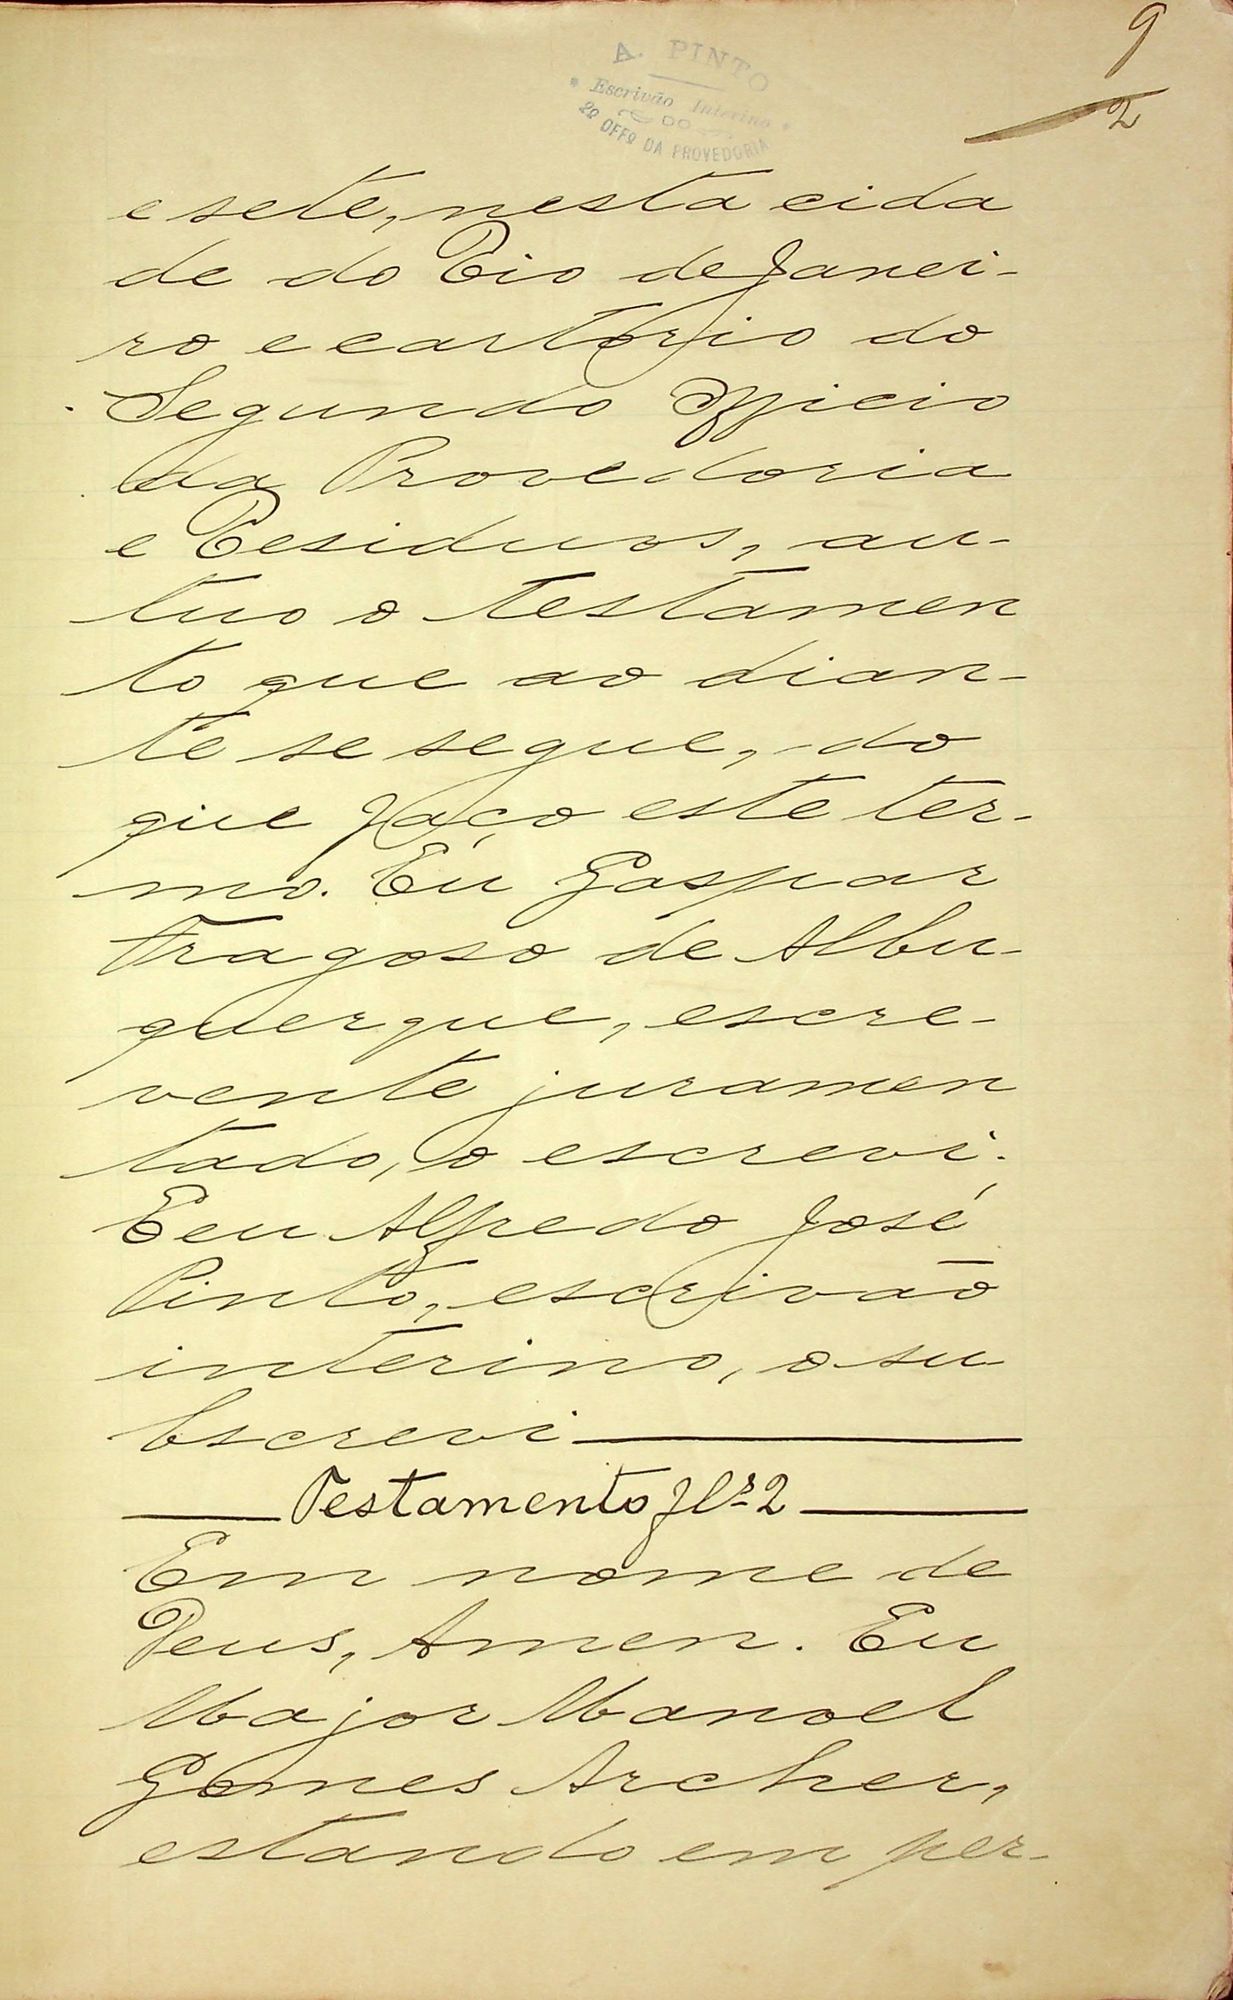 9
2
A. PINTO
Escrivão Interino
DO
2º OFFº DA PROVEDORIA
e sete, nesta cida
de do Rio de Janei-
ro e cartorio do
Segundo Officio
da Provedoria
e Residuos, au-
tuo o testamen
to que ao dian-
te se segue, do
que faço este ter-
mo. Eu Gaspar
Fragoso de Albu-
querque, escre-
vente juramen
tado, o escrevi.
E eu Alfredo José
Pinto, escrivão
interino, o su
bscrevi
Testamento fls. 2
Em nome de
Deus, Amen. Eu
Major Manoel
Gomes Archer,
estando em per-